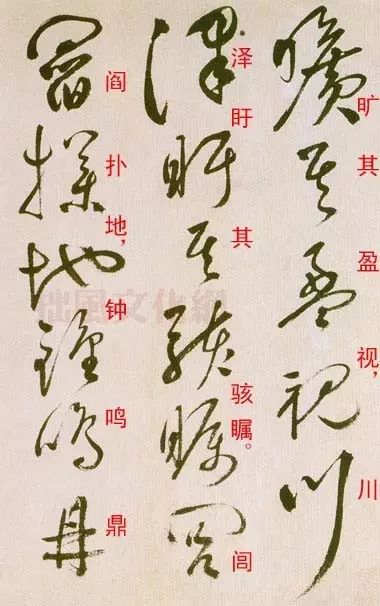 曠其盈視川
旷其盈视，川
澤盱其駭矚閭
泽盱其骇瞩。闾
閻撲地鍾鳴鼎
阎扑地，钟鸣鼎
拙風文化網